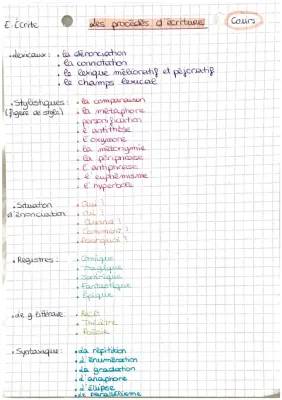 E. Écrite Les procédés d'écriture Cours
• Lexicaux : • la dénotation
• la connotation
• le lexique mélioratif et péjoratif
• le champs lexical
• Stylistiques : • la comparaison
(figure de style) • la métaphore
• personnification
• l'antithèse
• l'oxymore
• la métonymie
• la périphrase
• l'antiphrase
• l'euphémisme
• l'hyperbole
• Situation • Qui ?
d'énonciation • Où ?
• Quand ?
• Comment ?
• Pourquoi ?
• Registres : • Comique
• Tragique
• Satirique
• Fantastique
• Épique
• de g littéraire : • Récit
• Théâtre
• Poésie
• Syntaxique : • La répétition
• L'énumération
• La gradation
• L'anaphore
• L'ellipse
• Le parallélisme